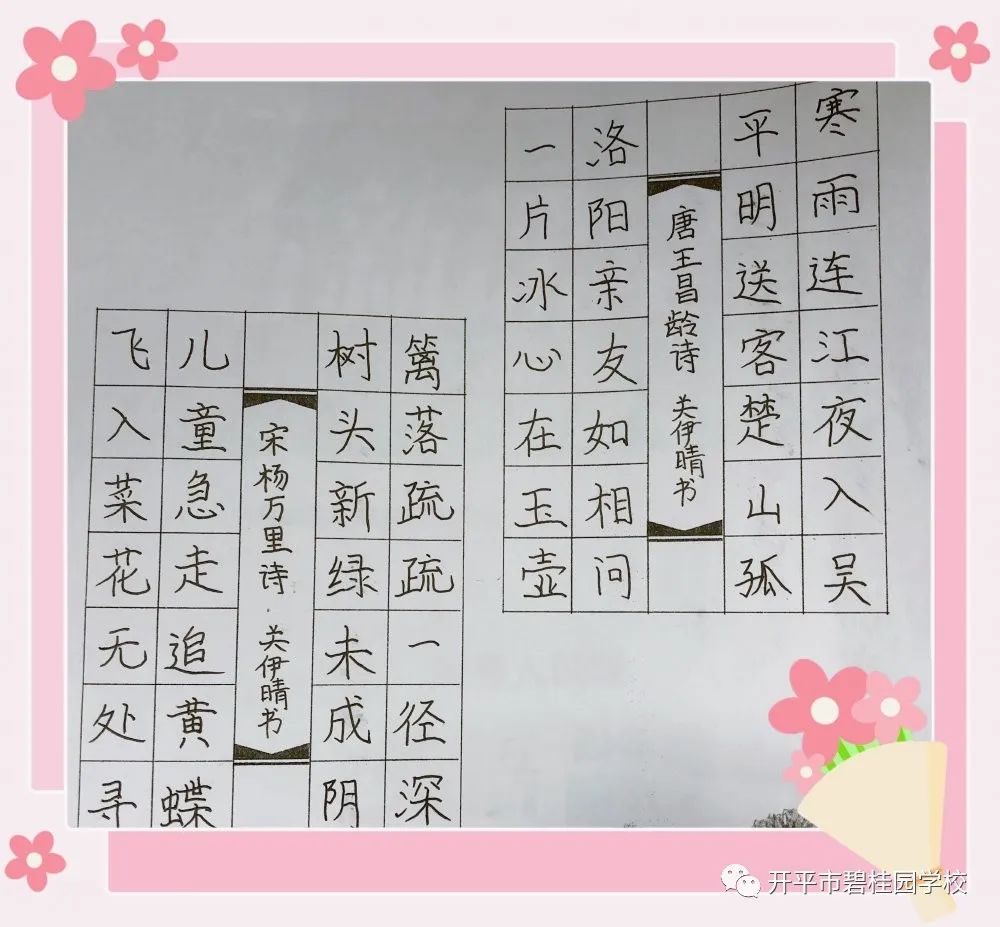 寒雨连江夜入吴
平明送客楚山孤
唐王昌龄诗 关伊晴书
洛阳亲友如相问
一片冰心在玉壶
篱落疏疏一径深
树头新绿未成阴
宋杨万里诗·关伊晴书
儿童急走追黄蝶
飞入菜花无处寻
开平市碧桂园学校